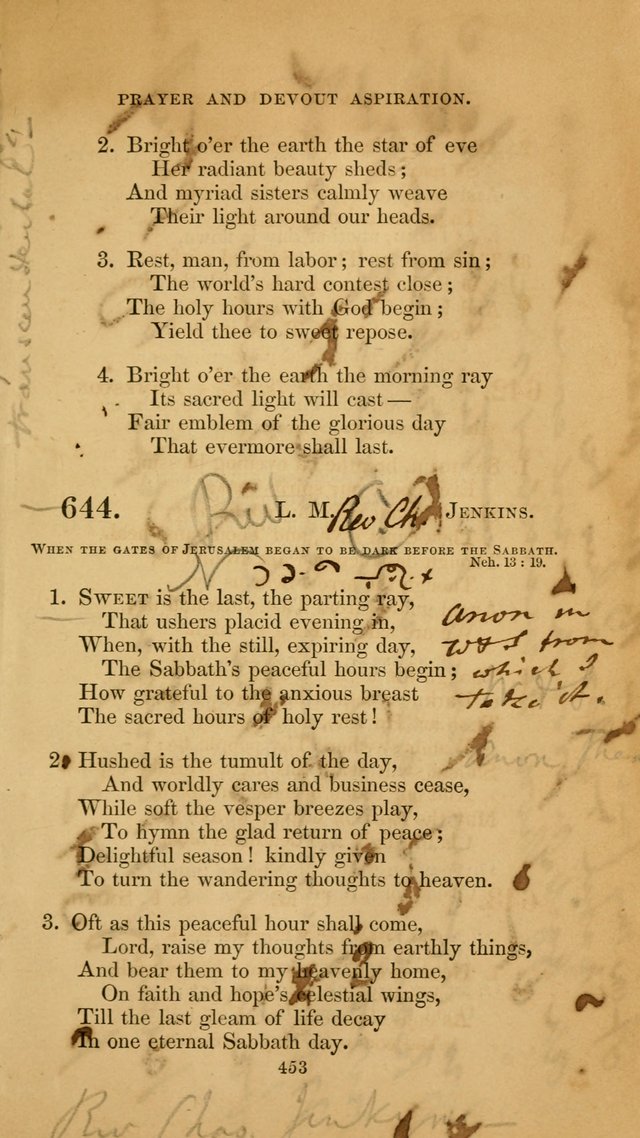 PRAYER AND DEVOUT ASPIRATION.
2. Bright o'er the earth the star of eve
Her radiant beauty sheds;
And myriad sisters calmly weave
Their light around our heads.
3. Rest, man, from labor; rest from sin;
The world's hard contest close;
The holy hours with God begin;
Yield thee to sweet repose.
4. Bright o'er the earth the morning ray
Its sacred light will cast—
Fair emblem of the glorious day
That evermore shall last.
644. L. M. Rev. Chs. JENKINS.
WHEN THE GATES OF JERUSALEM BEGAN TO BE DARK BEFORE THE SABBATH.
Neh. 13 : 19.
1. SWEET is the last, the parting ray,
That ushers placid evening in,
When, with the still, expiring day,
The Sabbath's peaceful hours begin;
How grateful to the anxious breast
The sacred hours of holy rest!
anon in
W & S from
which I
take it.
2. Hushed is the tumult of the day,
And worldly cares and business cease,
While soft the vesper breezes play,
To hymn the glad return of peace;
Delightful season! kindly given
To turn the wandering thoughts to heaven.
3. Oft as this peaceful hour shall come,
Lord, raise my thoughts from earthly things,
And bear them to my heavenly home,
On faith and hope's celestial wings,
Till the last gleam of life decay
In one eternal Sabbath day.
453
Rev Chas. Jenkins